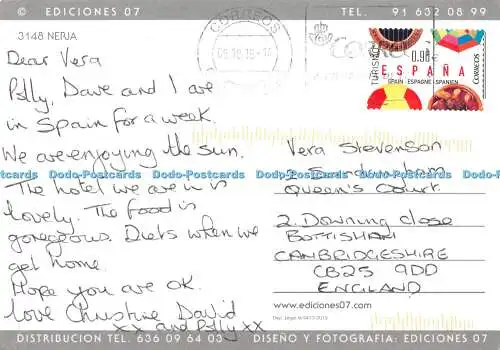 © EDICIONES 07 TEL. 91 632 08 99
3148 NERJA
CORREOS
TURISMO
0,90
CORREOS
ESPAÑA
SPAIN - ESPAGNE - SPANIEN
Dear Vera
Polly, Dave and I are
in Spain for a week.
We are enjoying the sun.
The hotel we are in is
lovely. The food is
goregeous. Diets when we
get home.
Hope you are OK.
love Christine David
xx and Polly xx
Vera Stevenson
Queen's Court
2. Downing close
BOTTISHAM
CAMBRIDGESHIRE
CB25 9DD
ENGLAND
www.ediciones07.com
Dodo-Postcards Dodo-Postcards Dodo-Postcards Dodo-Postcards Dodo-Postcards
DISTRIBUCION TEL. 636 09 64 03 DISEÑO Y FOTOGRAFIA: EDICIONES 07